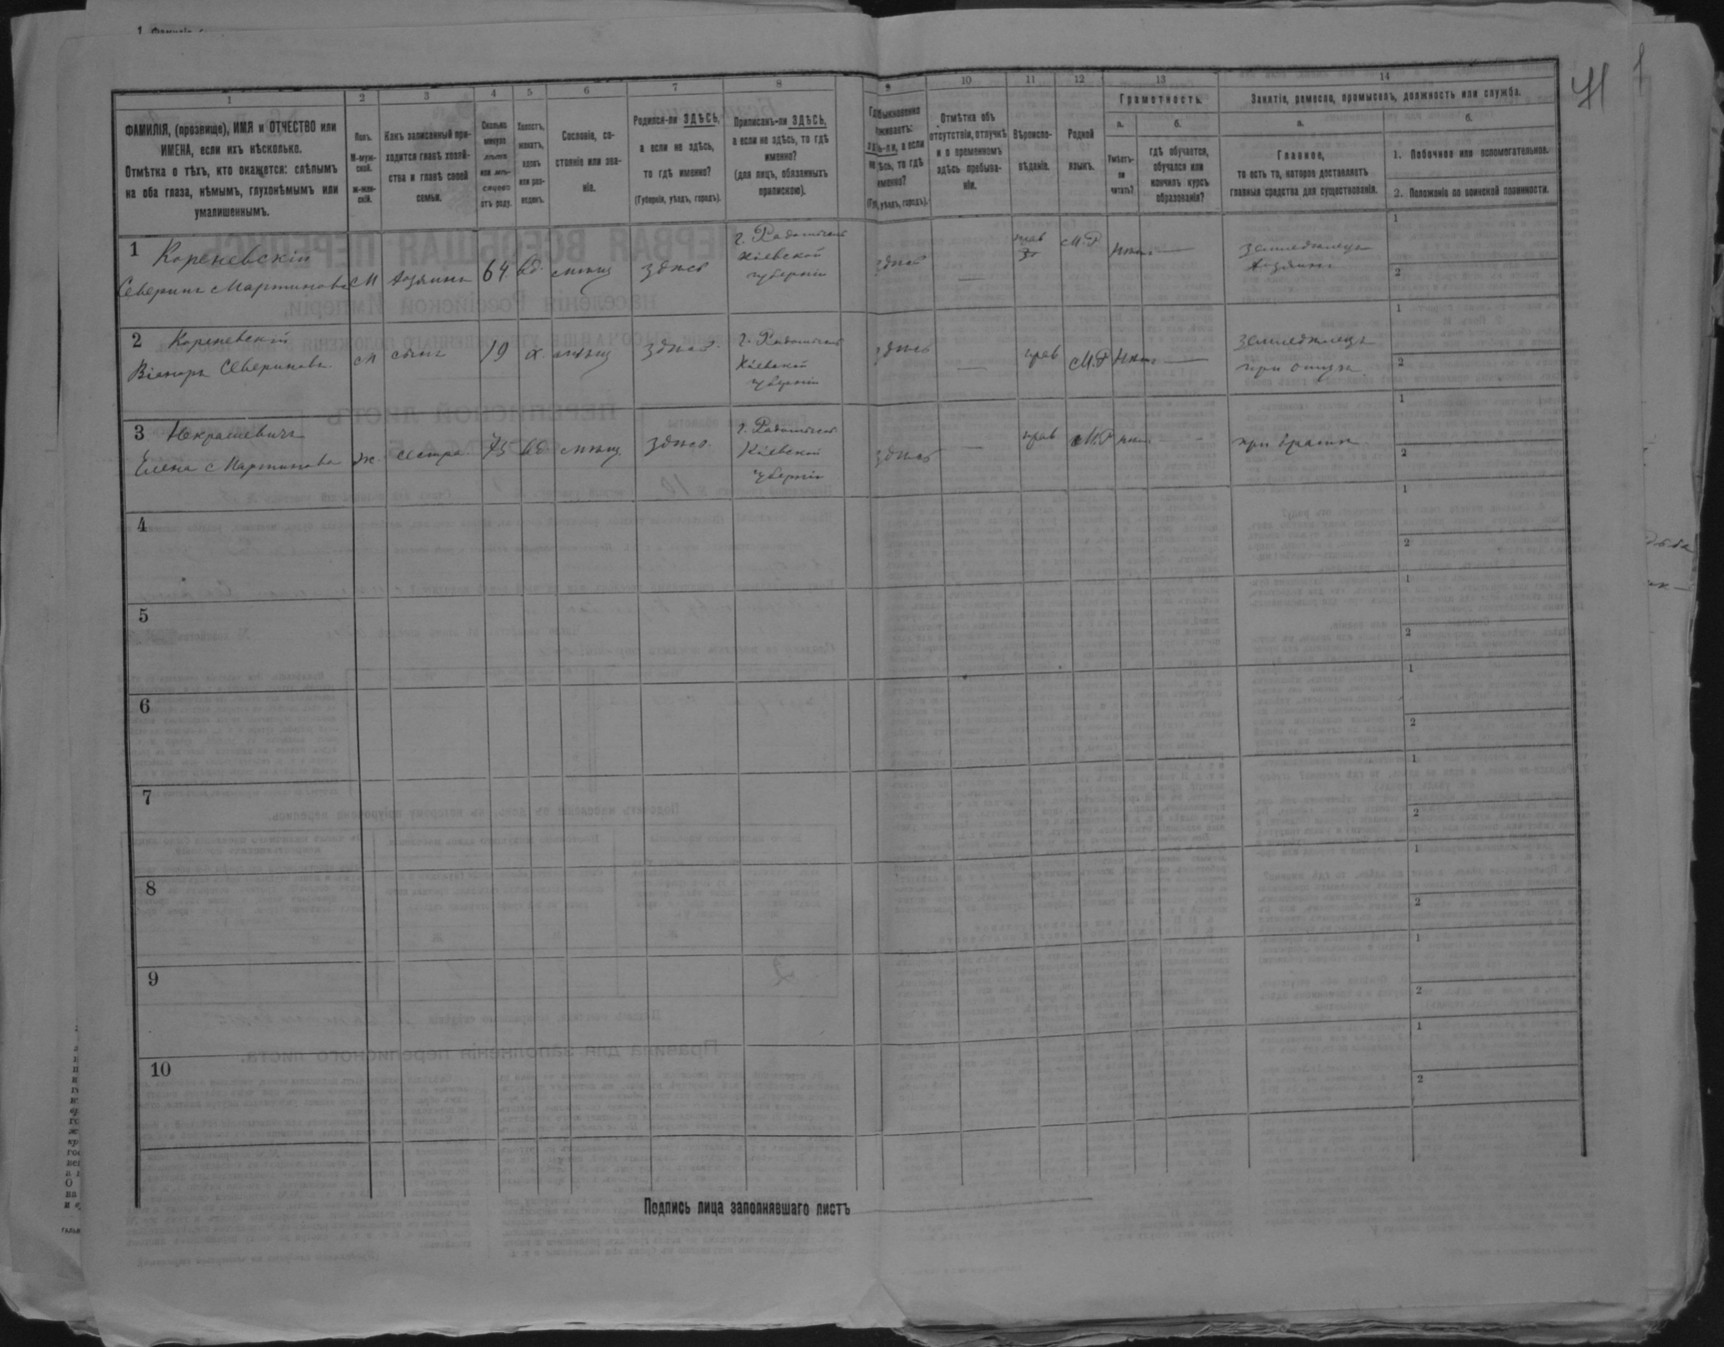 1 2 3 4 5 6 7 8 9 10 11 12 13 14
ФАМИЛІЯ, (прозвище), ИМЯ и ОТЧЕСТВО или
ИМЕНА, если ихъ нѣсколько.
Отмѣтка о тѣхъ, кто окажется: слѣпымъ
на оба глаза, нѣмымъ, глухонѣмымъ или
умалишеннымъ.
Полъ.
М-муж-
ской.
ж-жен-
скій.
Какъ записанный при-
ходится главѣ хозяй-
ства и главѣ своей
семьи.
Сколько
минуло
лѣтъ
или мѣ-
сяцевъ
отъ роду.
Холостъ,
женатъ,
вдовъ
или раз-
веденъ.
Сословіе, со-
стояніе или зва-
ніе.
Родился-ли ЗДѢСЬ,
а если не здѣсь,
то гдѣ именно?
(Губернія, уѣздъ, городъ).
Приписанъ-ли ЗДѢСЬ,
а если не здѣсь, то гдѣ
именно?
(для лицъ, обязанныхъ
припискою).
Гдѣ обыкновенно
проживаетъ:
здѣсь-ли, а если
не здѣсь, то гдѣ
именно?
(Губ., уѣздъ, городъ).
Отмѣтка объ
отсутствіи, отлучкѣ
и о временномъ
здѣсь пребыва-
ніи.
Вѣроиспо-
вѣданіе.
Родной
языкъ.
Грамотность.
а.
Умѣетъ-
ли
читать?
б.
гдѣ обучается,
обучался или
кончилъ курсъ
образованія?
Занятіе, ремесло, промыселъ, должность или служба.
а.
Главное,
то есть то, которое доставляетъ
главныя средства для существованія.
б.
1. Побочное или вспомогательное.
2. Положеніе по воинской повинности.
1 Кореневскій
Северинъ Мартиновъ М хозяинъ 64 вд. мѣщ здѣсь
г. Радомысль
Кіевской
губерніи
здѣсь — прав М.Р нѣтъ —
земледѣлецъ
хозяинъ
1
2
2 Кореневскій
Викторъ Севериновъ М сынъ 19 х мѣщ здѣсь
г. Радомысль
Кіевской
губерніи
здѣсь — прав М.Р нѣтъ —
земледѣлецъ
при отцѣ
1
2
3 Некрашевичъ
Елена Мартинова ж. сестра 73 вд. мѣщ здѣсь.
г. Радомысль
Кіевской
губерніи
здѣсь — прав М.Р нѣтъ —
при братѣ
1
2
4
1
2
5
1
2
6
1
2
7
1
2
8
1
2
9
1
2
10
1
2
Подпись лица заполнявшаго листъ